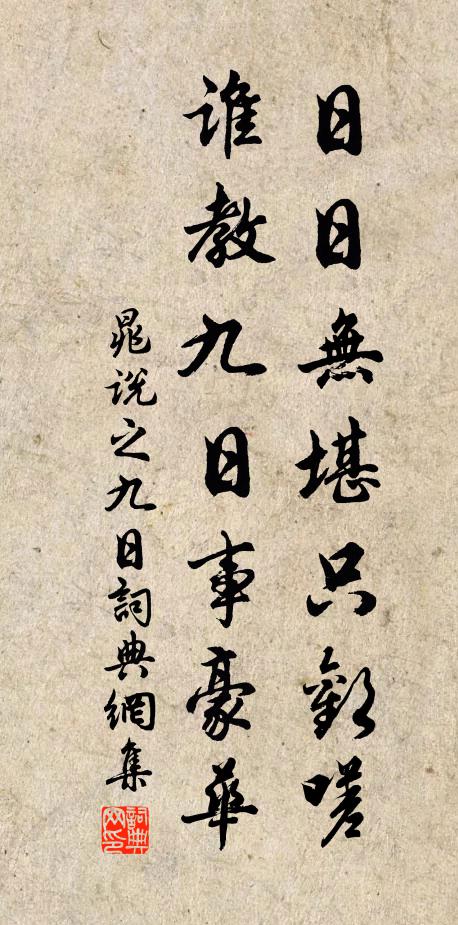 日日無堪只歎嗟
誰教九日事豪華
晁說之九日詞典網集
詞典
网印